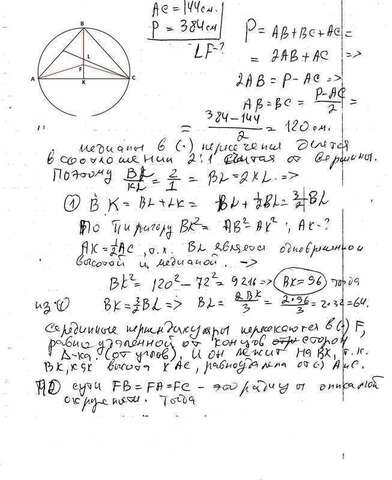 AC = 144 см.
P = 384 см
LF - ?
P = AB + BC + AC =
= 2AB + AC =>
2AB = P - AC =>
AB = BC = P-AC/2 =
= 384-144/2 = 120 см.
B
L
F
A
K
C
медианы в (·) пересечения делятся
в соотношении 2:1 считая от вершины.
Поэтому BL/KL = 2/1 = BL = 2KL =>
① BK = BL + LK = BL + 1/2 BL = 3/2 BL
По Пифагору BK² = AB² - AK², AK - ?
AK = 1/2 AC, т.к. BL является одновременно
высотой и медианой. ->
BK² = 120² - 72² = 9216 => BK = 96 тогда
из ① BK = 3/2 BL => BL = 2BK/3 = 2·96/3 = 2·32 = 64.
Серединные перпендикуляры пересекаются в (·) F,
равноудаленной от концов сторон
Δ-ка (от углов). И он лежит на BK, т.к.
BK, как высота к AC, равноудалена от (·) A и C.
По сути FB = FA = FC - это радиусы описаной
окружности. Тогда